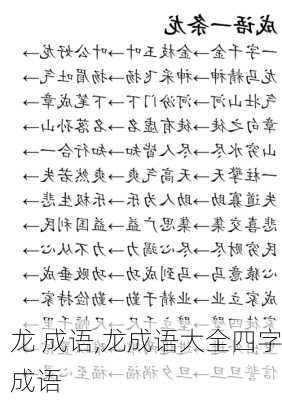 成语一条龙
一字千金→金枝玉叶→叶公好龙→
龙马精神→神采飞扬→扬眉吐气→
气壮山河→河汾门下→下笔成章→
章句之徒→徒有虚名→名落孙山→
山穷水尽→尽人皆知→知行合一→
一柱擎天→天高气爽→爽然若失→
失道寡助→助人为乐→乐极生悲→
悲喜交集→集思广益→益国利民→
民穷财尽→尽心竭力→力不从心→
心猿意马→马到成功→功败垂成→
成家立业→业精于勤→勤俭持家→
家徒四壁→壁立千尺→尺幅千里→
龙 成语,龙成语大全四字
成语
信誓旦旦→旦夕祸福→福至心灵→